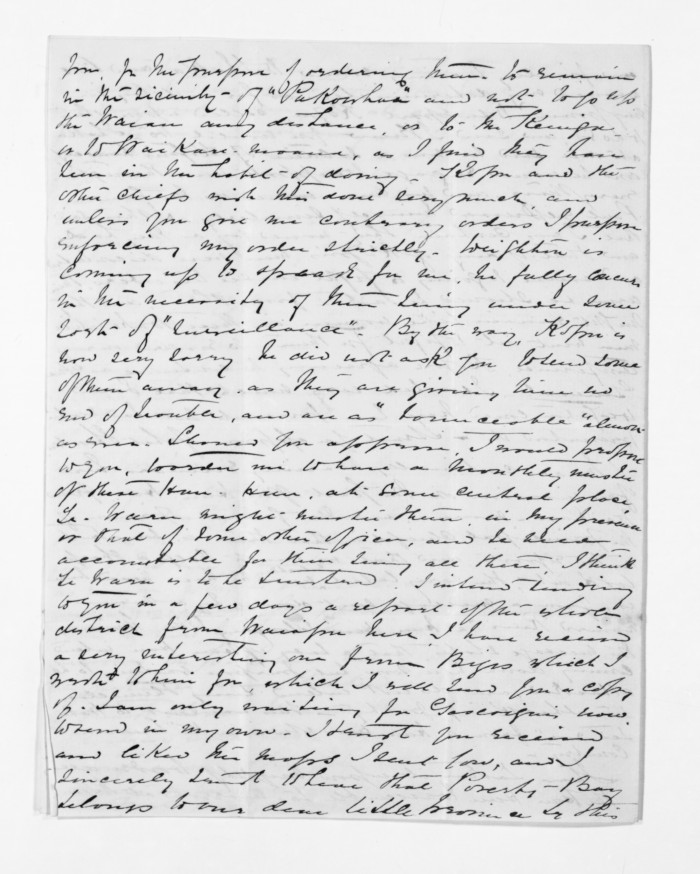 you, for the purpose of ordering them to remain
in the vicinity of "Pakowhai" and not to go up
the Wairau any distance, as to the Kenga
or to Waikare-moana, as I find they have
been in the habit of doing. Kopu and the
other chiefs wish this done very much, and
unless you give me contrary orders I purpose
enforcing my order strictly. Deighton is
coming up to speak for me, he fully concurs
in the necessity of them being under some
sort of "Surveillance". By the way, Kopu is
now very sorry he did not ask you to send some
of them away, as they are giving him no
end of trouble, and are as almost
as ever. Should you approve, I would propose
to you, to order me to have a monthly muster
of these Hau-Hau, at some central place
Te Waru might muster them, in my presence
or that of some other officer, and be held
accountable for them being all there, I think
Te Waru is to be trusted. I intend sending
to you in a few days a report of the whole
district from Wairoa here, I have received
a very interesting one from Biggs which I
wrote to him for, which I will send you a copy
of. I am only waiting for Gascoigne's now
to send in my own. I trust you received
and liked the maps I sent you, and I
sincerely trust to hear that Poverty-Bay
belongs to our dear little Province by this